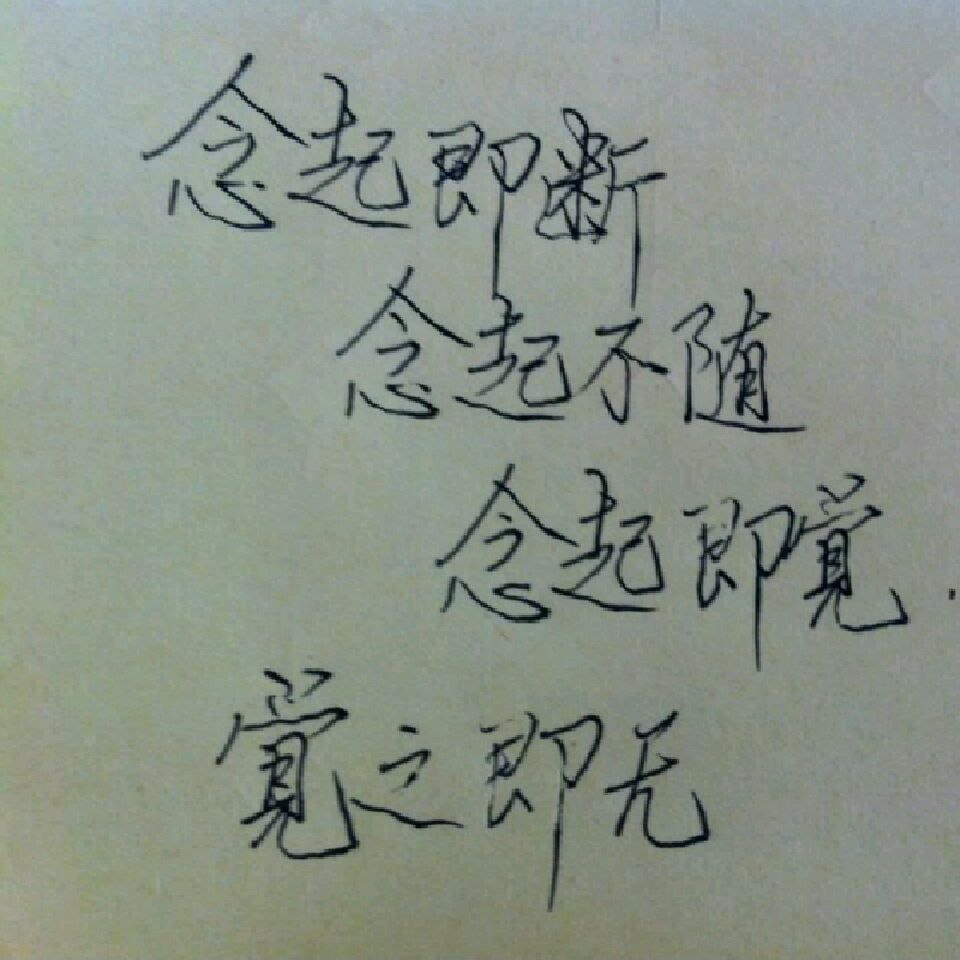 念起即断
念起不随
念起即覺
覺之即无